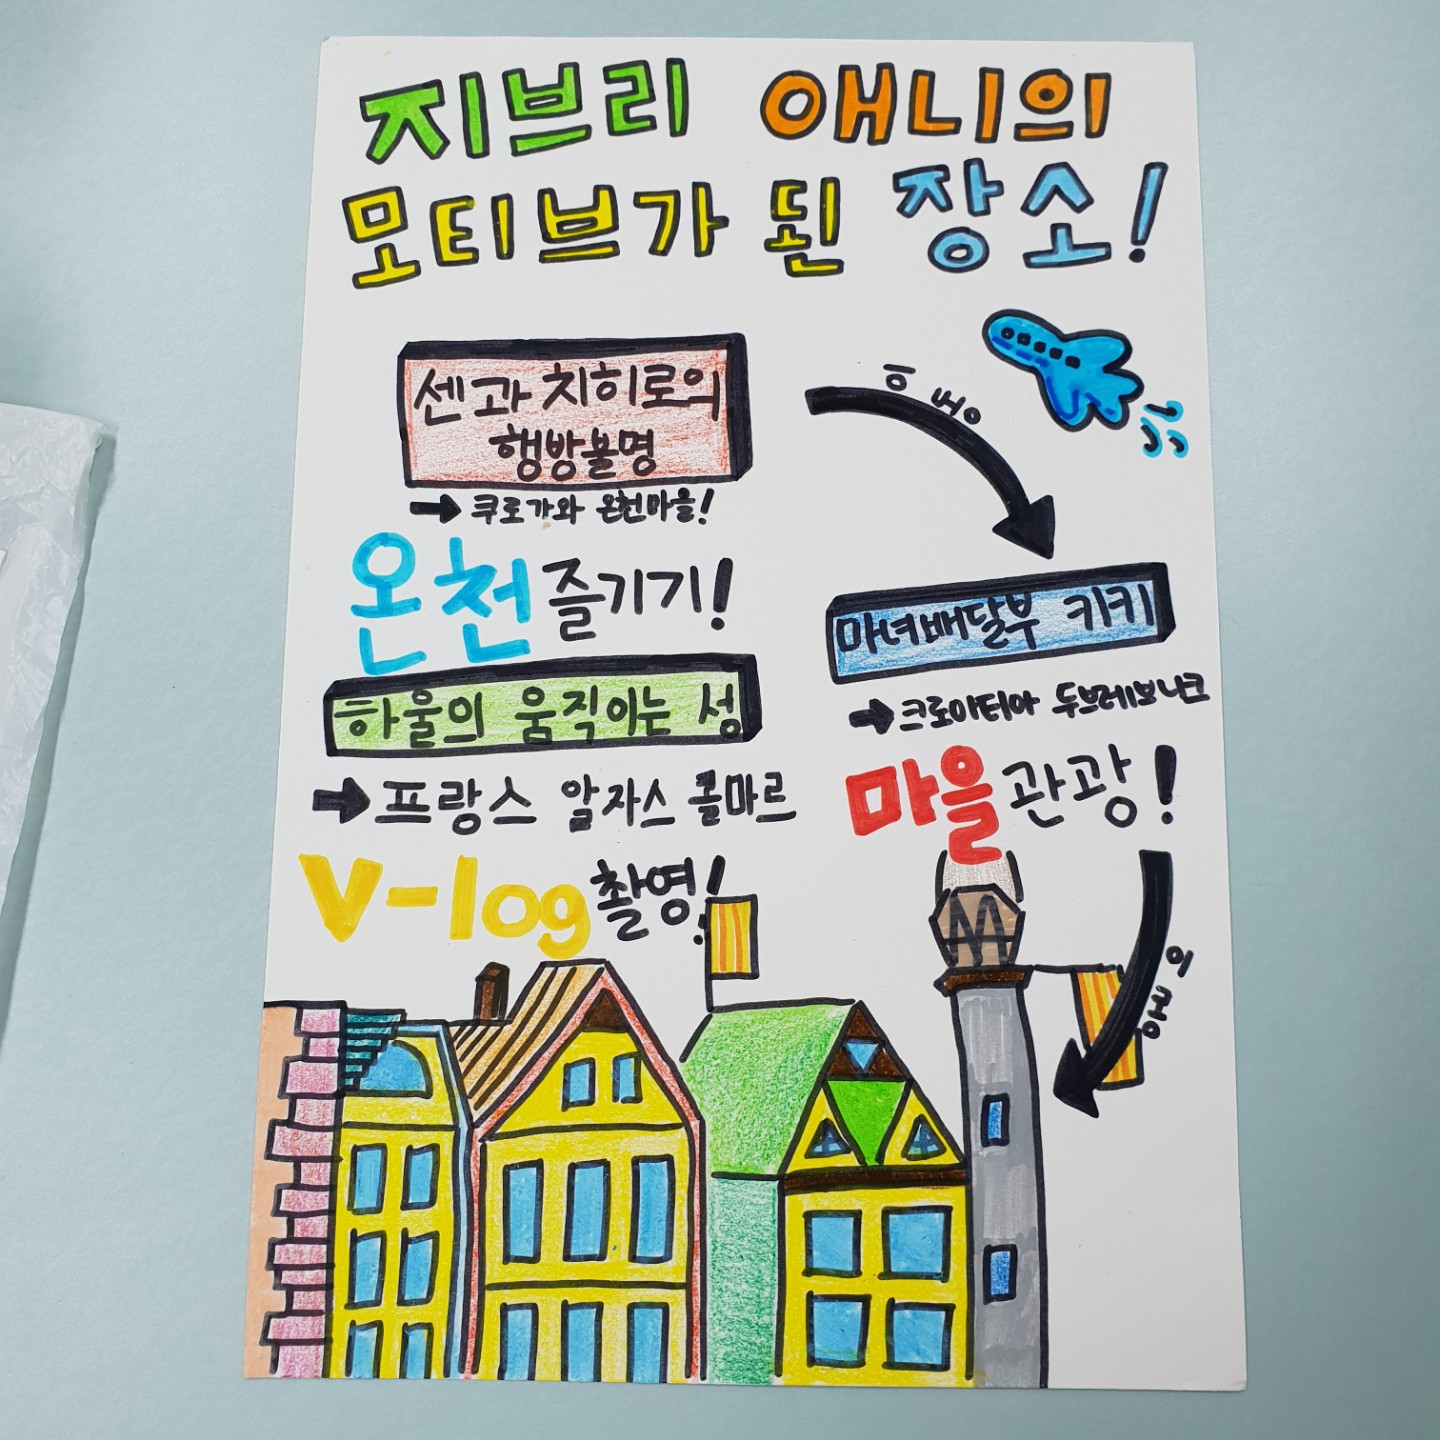 지브리 애니의
모티브가 된 장소!
센과 치히로의
행방불명
→ 쿠로가와 온천마을!
온천 즐기기!
하울의 움직이는 성
→ 프랑스 알자스 콜마르
V-log 촬영!
마녀배달부 키키
→ 크로아티아 두브레보니크
마을 관광!